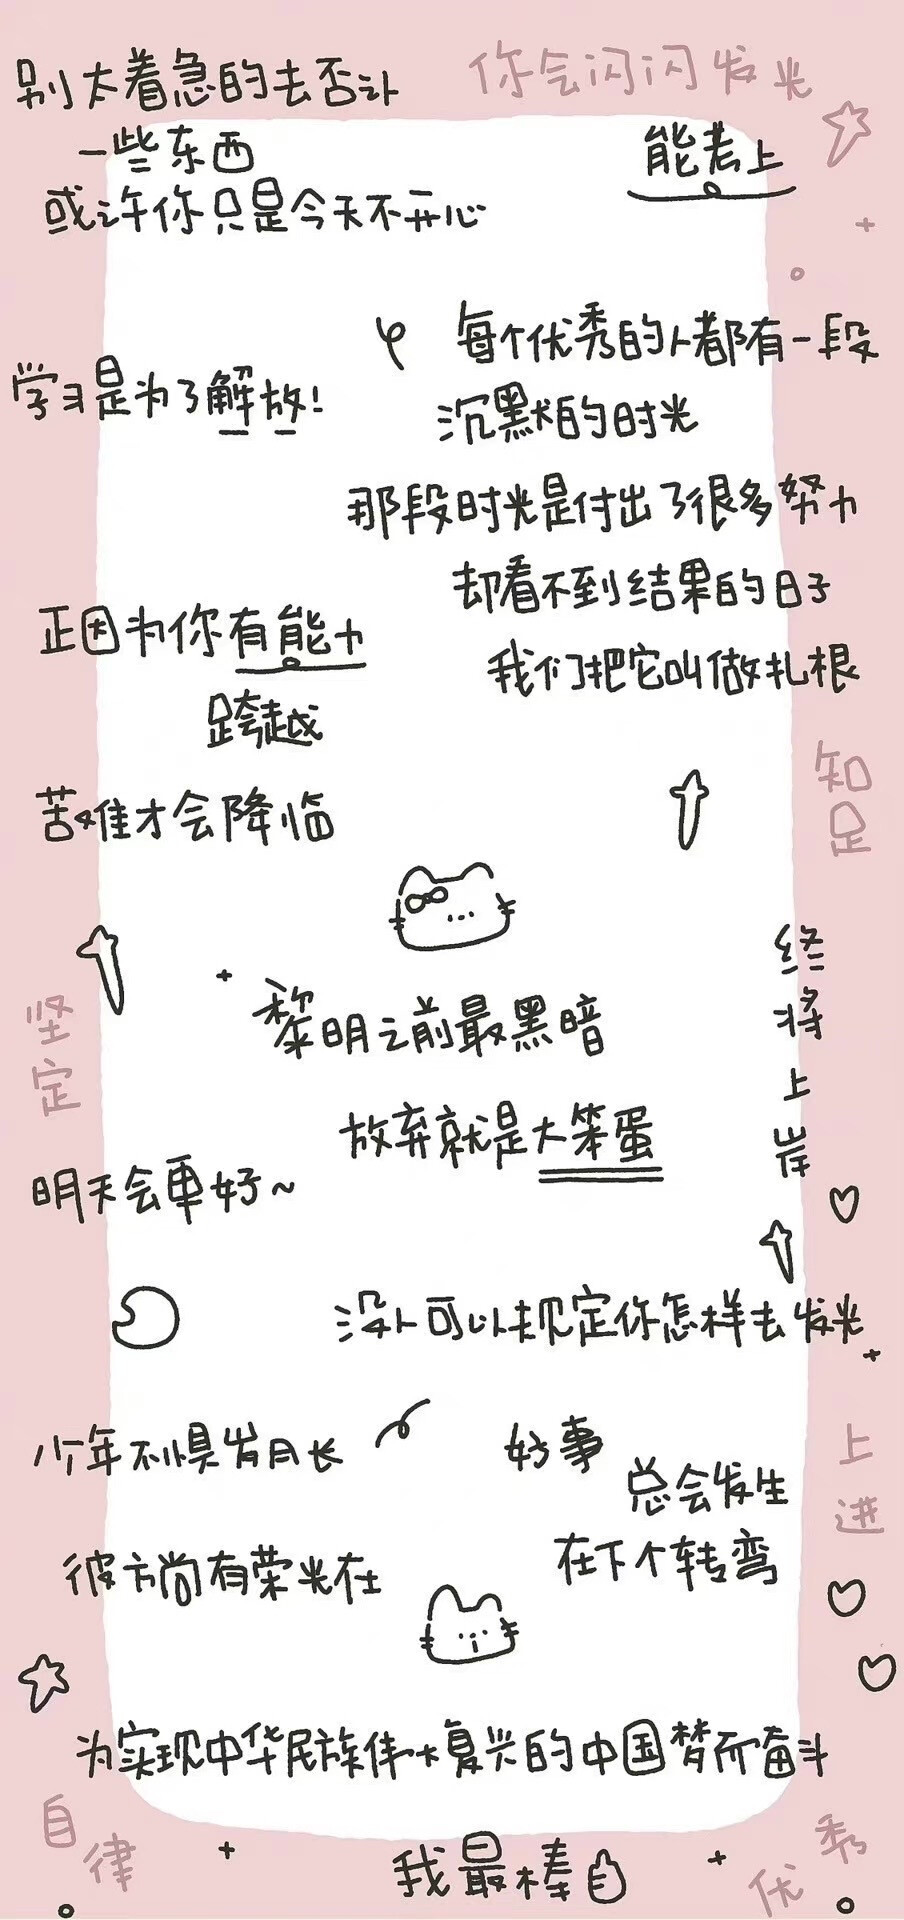 别太着急的去否认
一些东西
或许你只是今天不开心
你会闪闪发光
能考上
每个优秀的人都有一段
沉默的时光
那段时光是付出了很多努力
却看不到结果的日子
我们把它叫做扎根
学习是为了解放!
正因为你有能力
跨越
苦难才会降临
知足
坚定
终将上岸
黎明之前最黑暗
放弃就是大笨蛋
明天会更好~
没人可以规定你怎样去发光
少年不惧岁月长
彼方尚有荣光在
好事
总会发生
在下个转弯
上进
为实现中华民族伟大复兴的中国梦而奋斗
自律
我最棒
优秀